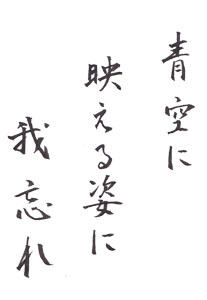 青空に
映える姿に
我忘れ